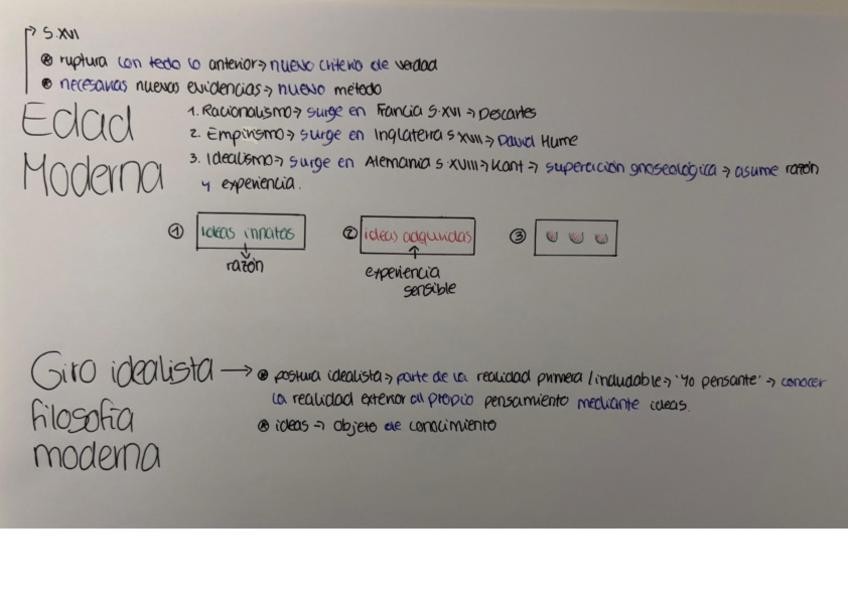 S.XVI
ruptura con todo lo anterior → nuevo criterio de verdad
necesarias nuevas evidencias → nuevo método
Edad
Moderna
1. Racionalismo → surge en Francia S.XVI → Descartes
2. Empirismo → surge en Inglaterra S XVII → David Hume
3. Idealismo → surge en Alemania S.XVIII → Kant → superación gnoseológica → asume razón
y experiencia.
① ideas innatas ② ideas adquiridas ③
razón
experiencia
sensible
Giro idealista → postura idealista → parte de la realidad primera / indudable → 'Yo pensante' → conocer
la realidad exterior al propio pensamiento mediante ideas.
filosofia
ideas → objeto de conocimiento
moderna